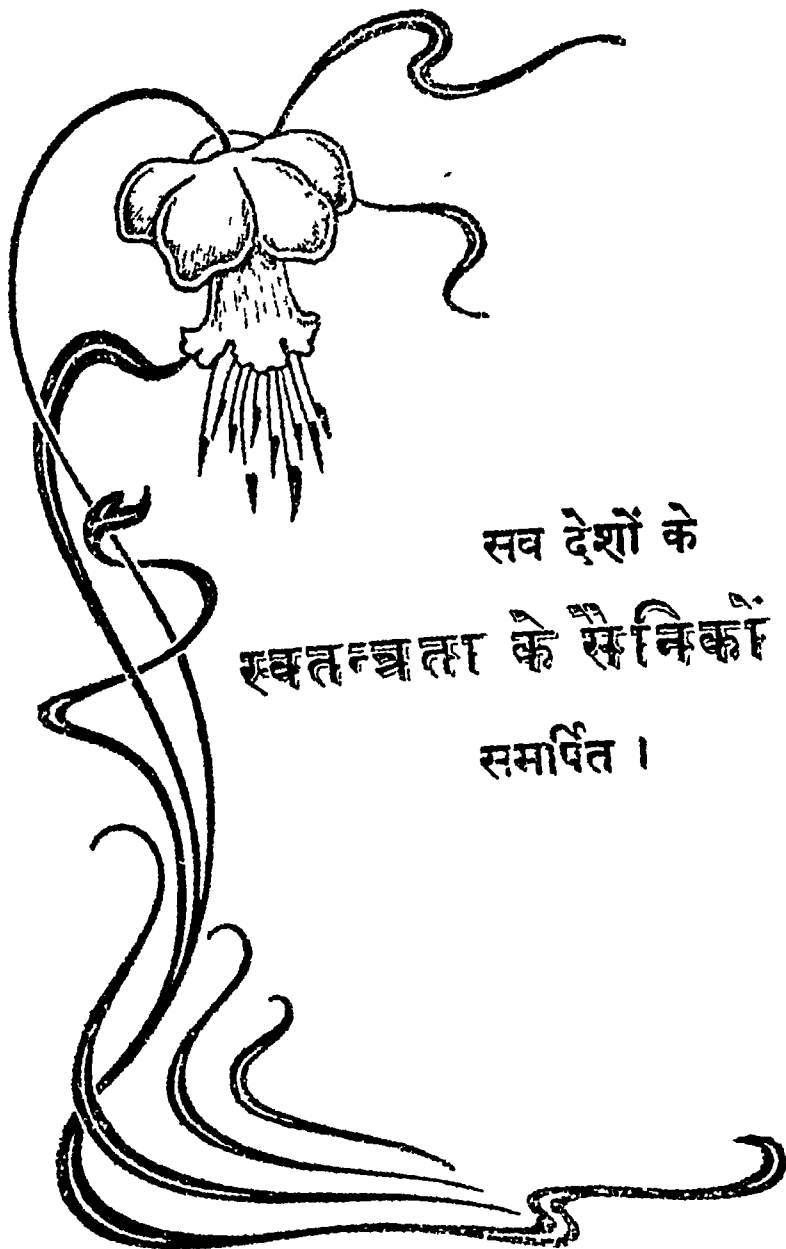 सव देशों के
स्वतन्त्रता के सैनिकों
समर्पित ।